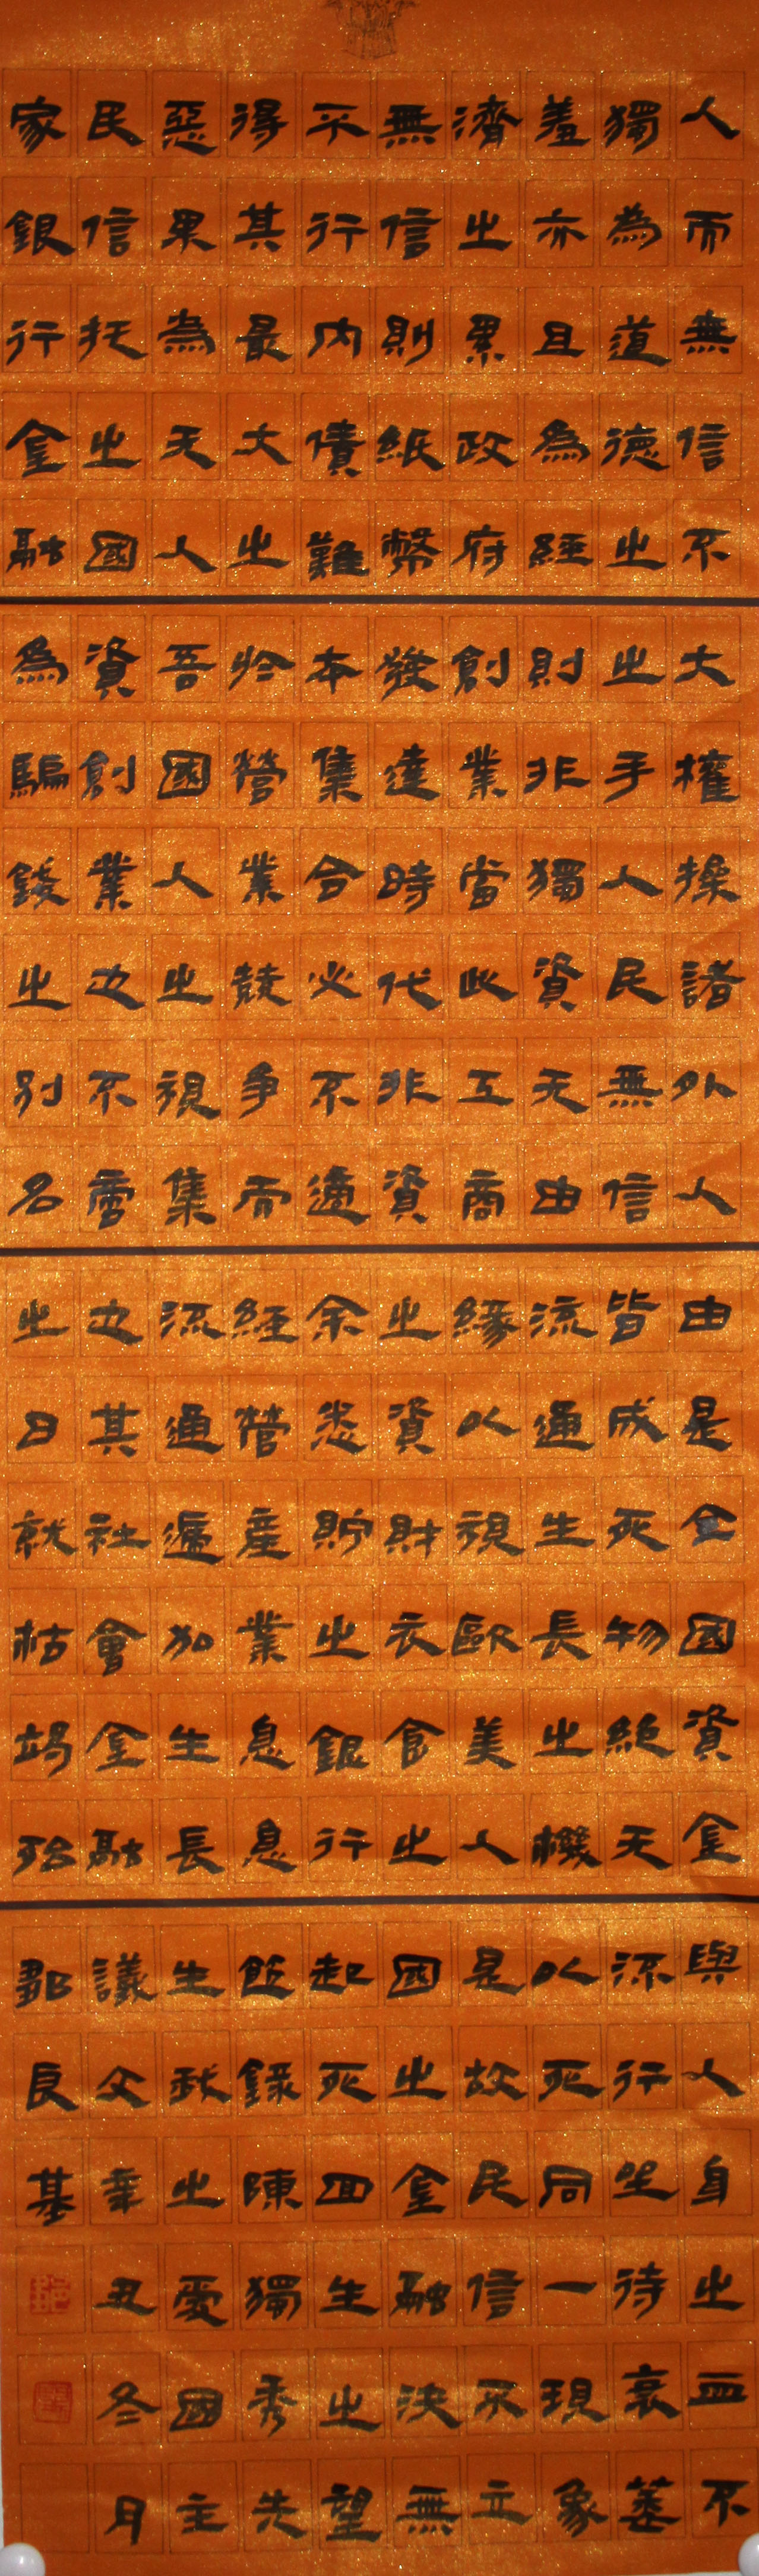 人而無信不
獨為道德之
羞亦且為經
濟之累政府
無信則紙幣
不行內債難
得其最大之
惡果為天人
民信托之國
家銀行金融
大權操諸外人
之手人民無信
則非獨資无由
創業當此工商
發達時代非資
本集合必不適
於營業競爭而
吾國人之視集
資創業也不啻
為騙錢之別名
由是全國資金
皆成死物絕天
流通生長之機
緣以視歐美人
之資財衣食之
余悉貯之銀行
經營產業息息
流通遞加生長
也其社會金融
之日就枯竭殆
與人身之血不
流行坐待衰萎
以死同一現象
是故民信不立
國之金融決無
起死回生之望
錄陳獨秀先
生我之愛國主
義文辛丑冬月
良基